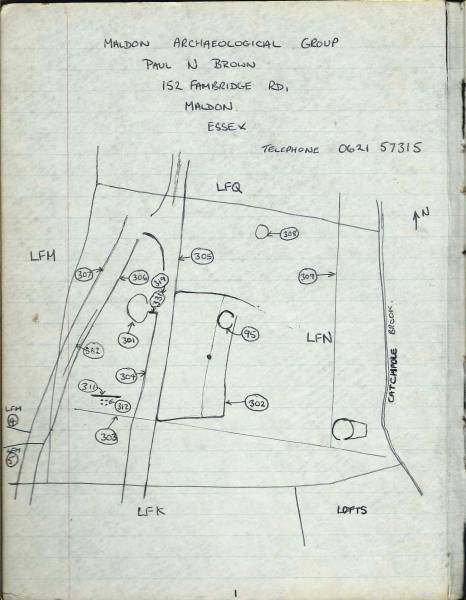 MALDON ARCHAEOLOGICAL GROUP
PAUL N BROWN
152 FAMBRIDGE RD,
MALDON
ESSEX
TELEPHONE 0621 57315
LFQ
N
LFM
308
305
307
306
319
309
331
301
LFN
95
CATCHPOLE BROOK.
382
304
311
312
302
LFM
4
303
5
LFK
LOFTS
1